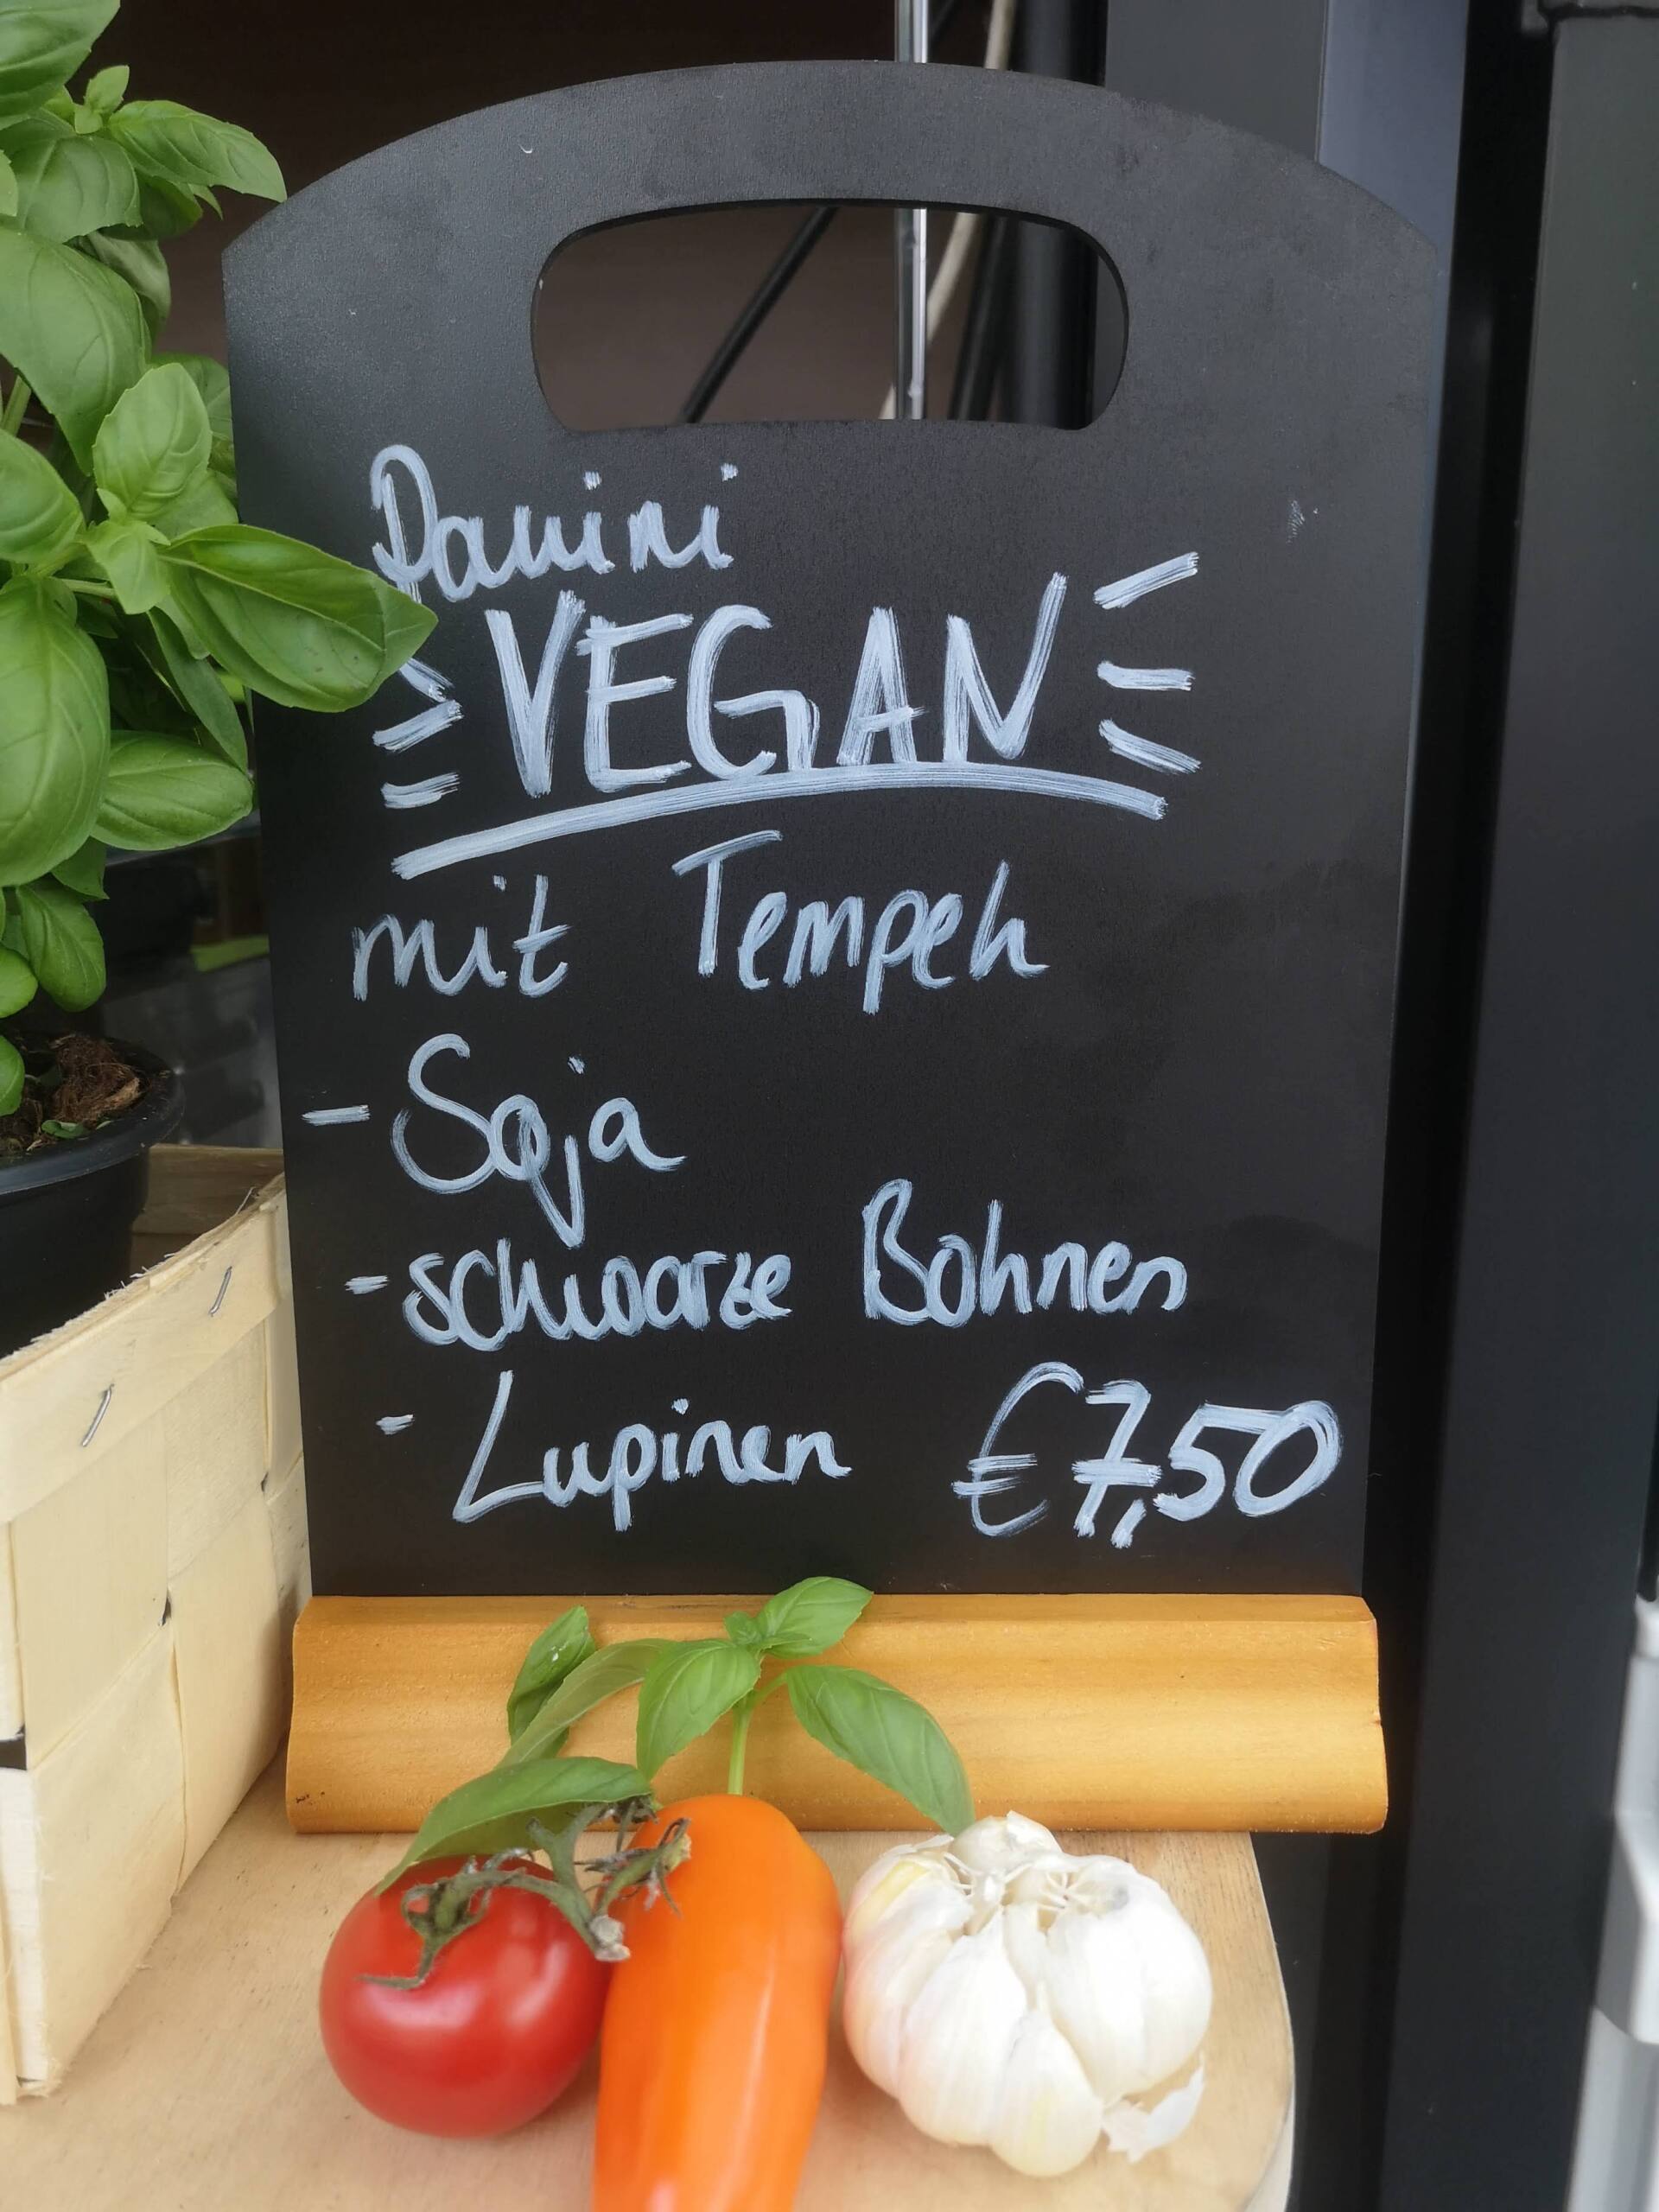 Panini
VEGAN
mit Tempeh
- Soja
- schwarze Bohnen
- Lupinen €7,50